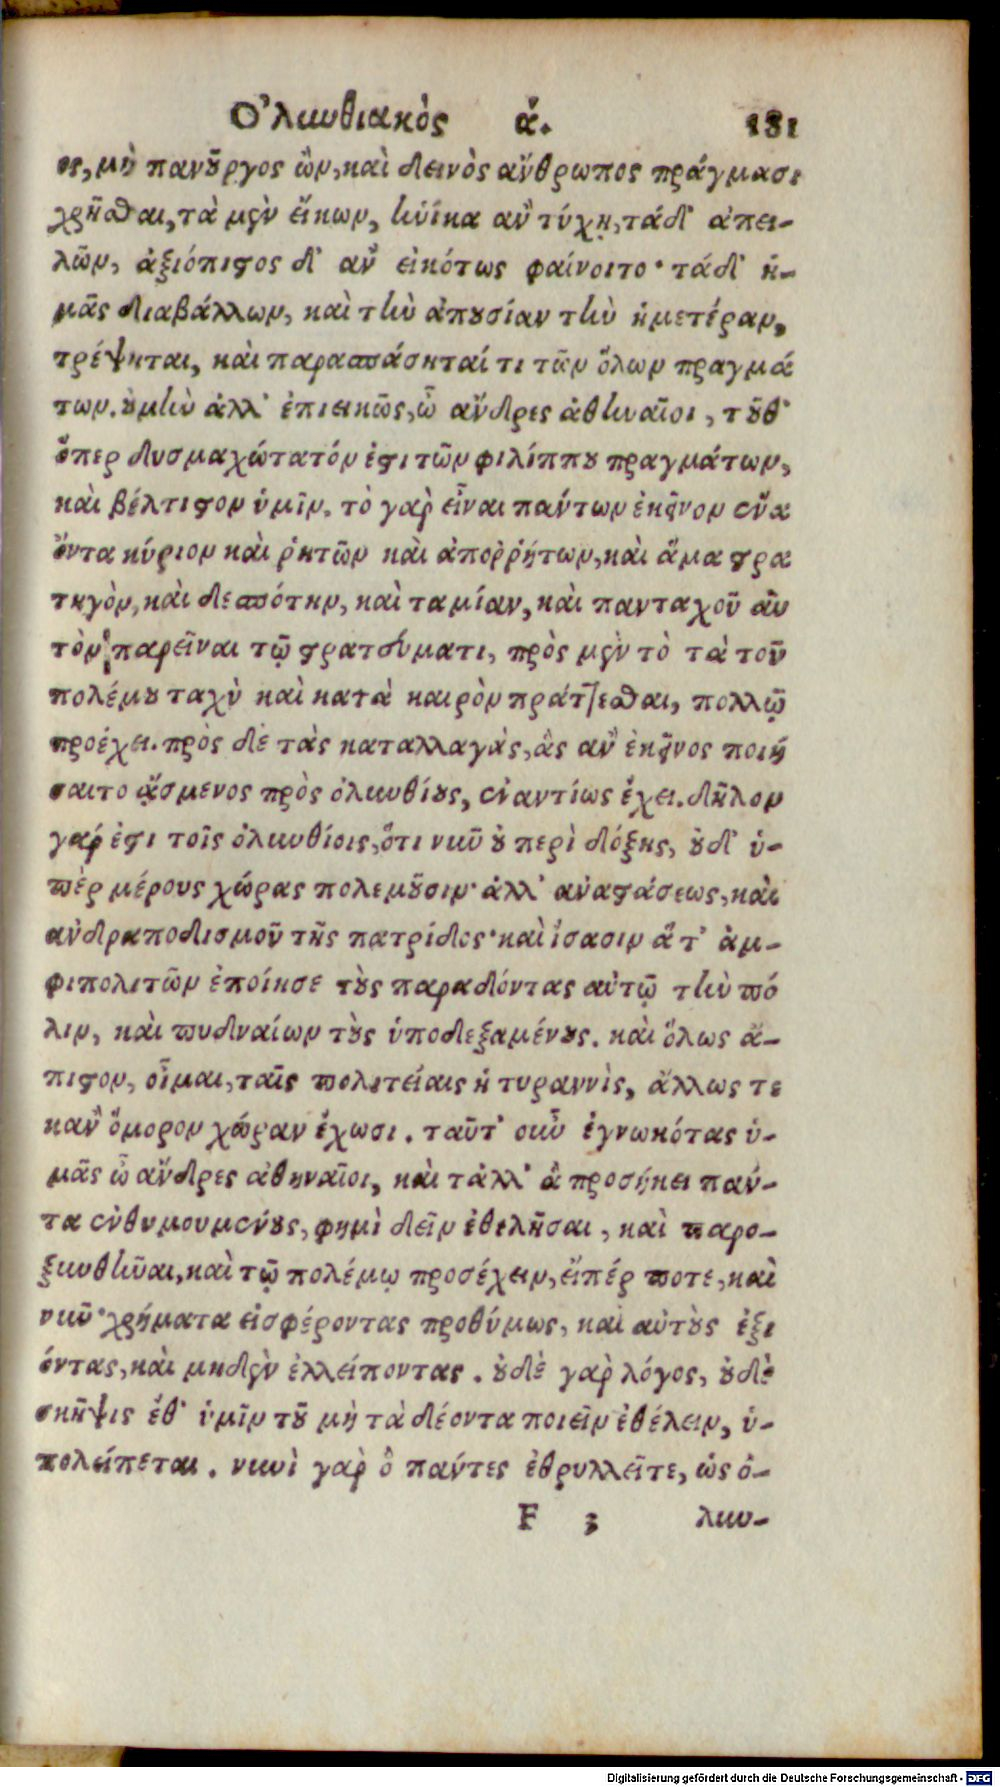 Ὀλυνθιακὸς ά. 131
ος, μὴ πανοῦργος ὢν, καὶ δεινὸς ἄνθρωπος πράγμασι
χρῆσθαι, τὰ μὲν εἴκων, ἡνίκα ἂν τύχῃ, τάδ᾽ ἀπει-
λῶν, ἀξιόπιστος δ᾽ ἂν εἰκότως φαίνοιτο· τάδ᾽ ἡ-
μᾶς διαβάλλων, καὶ τὴν ἀπουσίαν τὴν ἡμετέραν,
τρέψηται, καὶ παρασπάσηταί τι τῶν ὅλων πραγμά
των. οὐ μὴν ἀλλ᾽ ἐπιεικῶς, ὦ ἄνδρες ἀθηναῖοι, τοῦθ᾽
ὅπερ δυσμαχώτατόν ἐστι τῶν φιλίππου πραγμάτων,
καὶ βέλτιστον ὑμῖν. τὸ γὰρ εἶναι πάντων ἐκεῖνον ἕνα
ὄντα κύριον καὶ ῥητῶν καὶ ἀποῤῥήτων, καὶ ἅμα στρα
τηγὸν, καὶ δεσπότην, καὶ ταμίαν, καὶ πανταχοῦ αὐ
τὸν παρεῖναι τῷ στρατεύματι, πρὸς μὲν τὸ τὰ τοῦ
πολέμου ταχὺ καὶ κατὰ καιρὸν πράττεσθαι, πολλῷ
προέχει. πρὸς δὲ τὰς καταλλαγὰς, ἃς ἂν ἐκεῖνος ποιή
σαιτο ἄσμενος πρὸς ὀλυνθίους, ἐναντίως ἔχει. δῆλον
γάρ ἐστι τοῖς ὀλυνθίοις, ὅτι νῦν οὐ περὶ δόξης, οὐδ᾽ ὑ-
πὲρ μέρους χώρας πολεμοῦσιν· ἀλλ᾽ ἀναστάσεως, καὶ
ἀνδραποδισμοῦ τῆς πατρίδος· καὶ ἴσασιν ἅ τ᾽ ἀμ-
φιπολιτῶν ἐποίησε τοὺς παραδόντας αὐτῷ τὴν πό
λιν, καὶ πυδναίων τοὺς ὑποδεξαμένους. καὶ ὅλως ἄ-
πιστον, οἶμαι, ταῖς πολιτείαις ἡ τυραννὶς, ἄλλως τε
κἂν ὅμορον χώραν ἔχωσι. ταῦτ᾽ οὖν ἐγνωκότας ὑ-
μᾶς ὦ ἄνδρες ἀθηναῖοι, καὶ τἆλλ᾽ ἃ προσήκει πάν-
τα ἐνθυμουμένους, φημὶ δεῖν ἐθελῆσαι, καὶ παρο-
ξυνθῆναι, καὶ τῷ πολέμῳ προσέχειν, εἴπέρ ποτε, καὶ
νῦν· χρήματα εἰσφέροντας προθύμως, καὶ αὐτοὺς ἐξι
όντας, καὶ μηδὲν ἐλλείποντας. οὐδὲ γὰρ λόγος, οὐδὲ
σκῆψις ἔθ᾽ ὑμῖν τοῦ μὴ τὰ δέοντα ποιεῖν ἐθέλειν, ὑ-
πολείπεται. νυνὶ γὰρ ὃ πάντες ἐθρυλλεῖτε, ὡς ὀ-
F 3 λυν-
Digitalisierung gefördert durch die Deutsche Forschungsgemeinschaft - DFG